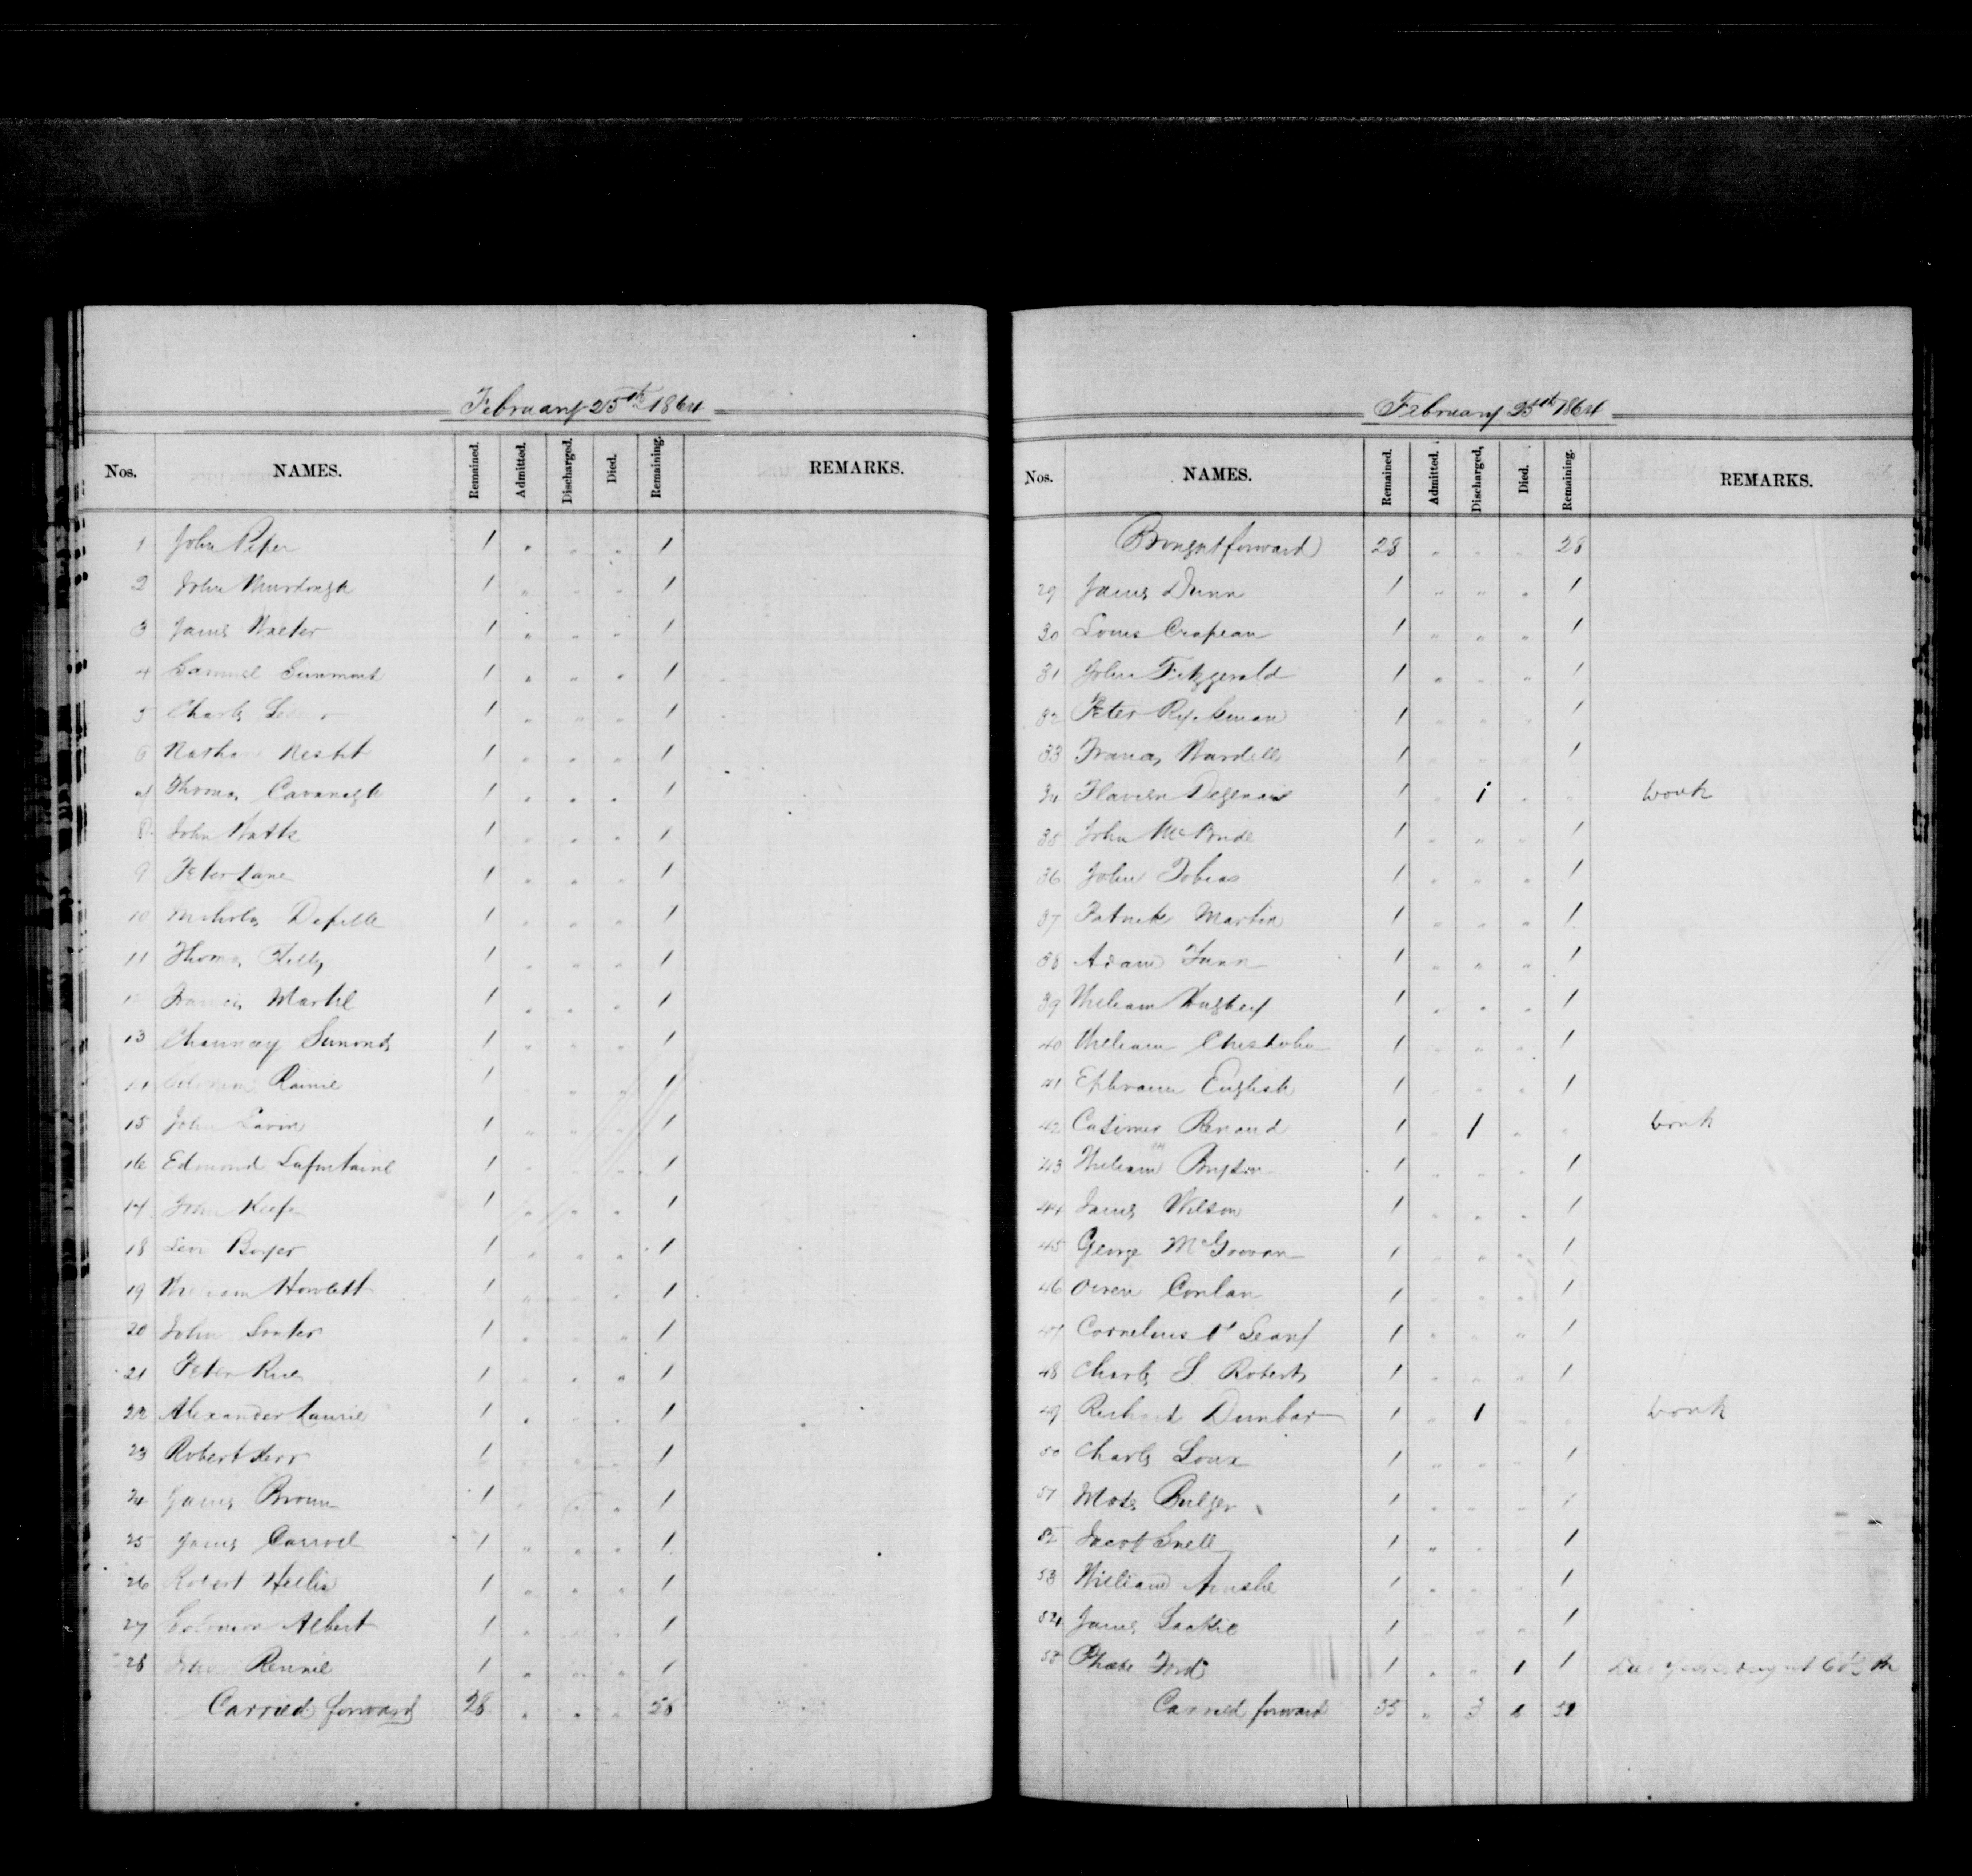 February 25th 1864
Nos. NAMES. Remained. Admitted. Discharged. Died. Remaining. REMARKS.
1 John Piper 1 " " " 1
2 John Murdough 1 " " " 1
3 James Walter 1 " " " 1
4 Samuel 1 " " " 1
5 Charles 1 " " " 1
6 Nathan Nesbit 1 " " " 1
7 Thomas Cavanagh 1 " " " 1
8 John Watts 1 " " " 1
9 Peter Lane 1 " " " 1
10 Nicholas 1 " " " 1
11 Thomas Kelly 1 " " " 1
12 Francis Martel 1 " " " 1
13 Chauncey Simonds 1 " " " 1
14 Rainie 1 " " " 1
15 John Lavin 1 " " " 1
16 Edmond Lafontaine 1 " " " 1
17 John Keefe 1 " " " 1
18 Levi Boyer 1 " " " 1
19 William Howlett 1 " " " 1
20 John Souter 1 " " " 1
21 Peter Rice 1 " " " 1
22 Alexander Laurie 1 " " " 1
23 Robert Kerr 1 " " " 1
24 James Brown 1 " " " 1
25 James Carroll 1 " " " 1
26 Robert Hillis 1 " " " 1
27 Solomon Albert 1 " " " 1
28 John Rennie 1 " " " 1
Carried forward 28 " " " 28
February 25th 1864
Nos. NAMES. Remained. Admitted. Discharged, Died. Remaining. REMARKS.
Brought forward 28 " " " 28
29 James Dunn 1 " " " 1
30 Louis Crapeau 1 " " " 1
31 John Fitzgerald 1 " " " 1
32 Peter Ryckman 1 " " " 1
33 Francis Wardell 1 " " " 1
34 Flavien Dagenais 1 " 1 " " work
35 John McBride 1 " " " 1
36 John Tobias 1 " " " 1
37 Patrick Martin 1 " " " 1
38 Adam Funn 1 " " " 1
39 William Hughey 1 " " " 1
40 William Chisholm 1 " " " 1
41 Ephraim English 1 " " " 1
42 Casimer Renaud 1 " 1 " " work
43 William 1 " " " 1
44 James Wilson 1 " " " 1
45 George McGowan 1 " " " 1
46 Owen Conlan 1 " " " 1
47 Cornelius O'Leary 1 " " " 1
48 Charles S Roberts 1 " " " 1
49 Richard Dunbar 1 " 1 " " work
50 Charles Loux 1 " " " 1
51 Moses Bulger 1 " " " 1
52 Jacob Snell 1 " " " 1
53 William Ainslie 1 " " " 1
54 James Leckie 1 " " " 1
55 Phoebe Ford 1 " " 1 1 yesterday at
Carried forward 55 " 3 1 51